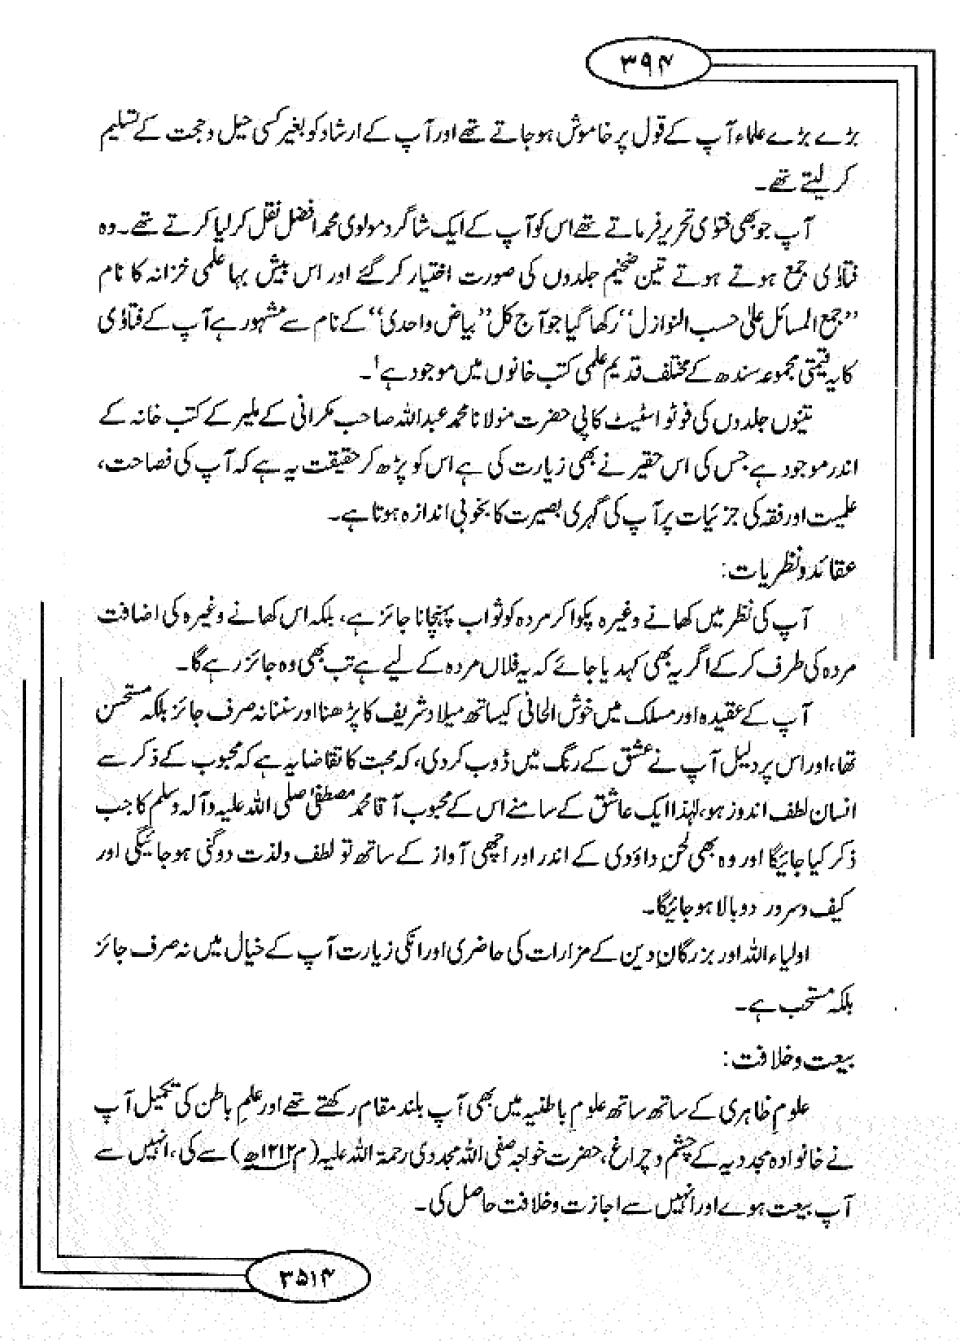 ۳۹۴
بڑے بڑے علماء آپ کے قول پر خاموش ہوجاتے تھے اور آپ کے ارشاد کو بغیر کسی حیل و حجت کے تسلیم
کر لیتے تھے۔
آپ جو بھی فتوٰی تحریر فرماتے تھے اس کو آپ کے ایک شاگرد مولوی محمد افضل نقل کر لیا کرتے تھے۔ وہ
فتاوٰی جمع ہوتے ہوتے تین ضخیم جلدوں کی صورت اختیار کر گئے اور اس بیش بہا علمی خزانہ کا نام
”جمع المسائل علیٰ حسب النوازل“ رکھا گیا جو آج کل ”بیاض واحدی“ کے نام سے مشہور ہے آپ کے فتاوٰی
کا یہ قیمتی مجموعہ سندھ کے مختلف قدیم علمی کتب خانوں میں موجود ہے۱۔
تینوں جلدوں کی فوٹو اسٹیٹ کاپی حضرت مولانا محمد عبداللہ صاحب مکرانی کے ملیر کے کتب خانہ کے
اندر موجود ہے جس کی اس حقیر نے بھی زیارت کی ہے اس کو پڑھ کر حقیقت یہ ہے کہ آپ کی فصاحت،
علمیت اور فقہ کی جزئیات پر آپ کی گہری بصیرت کا بخوبی اندازہ ہوتا ہے۔
عقائد و نظریات:
آپ کی نظر میں کھانے وغیرہ پکوا کر مردہ کو ثواب پہنچانا جائز ہے، بلکہ اس کھانے وغیرہ کی اضافت
مردہ کی طرف کر کے اگر یہ بھی کہدیا جائے کہ یہ فلاں مردہ کے لیے ہے تب بھی وہ جائز رہے گا۔
آپ کے عقیدہ اور مسلک میں خوش الحانی کیساتھ میلاد شریف کا پڑھنا اور سننا نہ صرف جائز بلکہ مستحسن
تھا، اور اس پر دلیل آپ نے عشق کے رنگ میں ڈوب کر دی، کہ محبت کا تقاضا یہ ہے کہ محبوب کے ذکر سے
انسان لطف اندوز ہو، لہٰذا ایک عاشق کے سامنے اس کے محبوب آقا محمد مصطفیٰ صلی اللہ علیہ وآلہ وسلم کا جب
ذکر کیا جائیگا اور وہ بھی لحنِ داؤدی کے اندر اور اچھی آواز کے ساتھ تو لطف و لذت دوگنی ہو جائیگی اور
کیف و سرور دوبالا ہو جائیگا۔
اولیاء اللہ اور بزرگانِ دین کے مزارات کی حاضری اور انکی زیارت آپ کے خیال میں نہ صرف جائز
بلکہ مستحب ہے۔
بیعت و خلافت:
علومِ ظاہری کے ساتھ ساتھ علومِ باطنیہ میں بھی آپ بلند مقام رکھتے تھے اور علمِ باطن کی تکمیل آپ
نے خانوادہ مجددیہ کے چشم و چراغ، حضرت خواجہ صفی اللہ مجددی رحمۃ اللہ علیہ (م ۱۲۱۲ھ) سے کی، انہیں سے
آپ بیعت ہوے اور انہیں سے اجازت و خلافت حاصل کی۔
۳۵۱۴